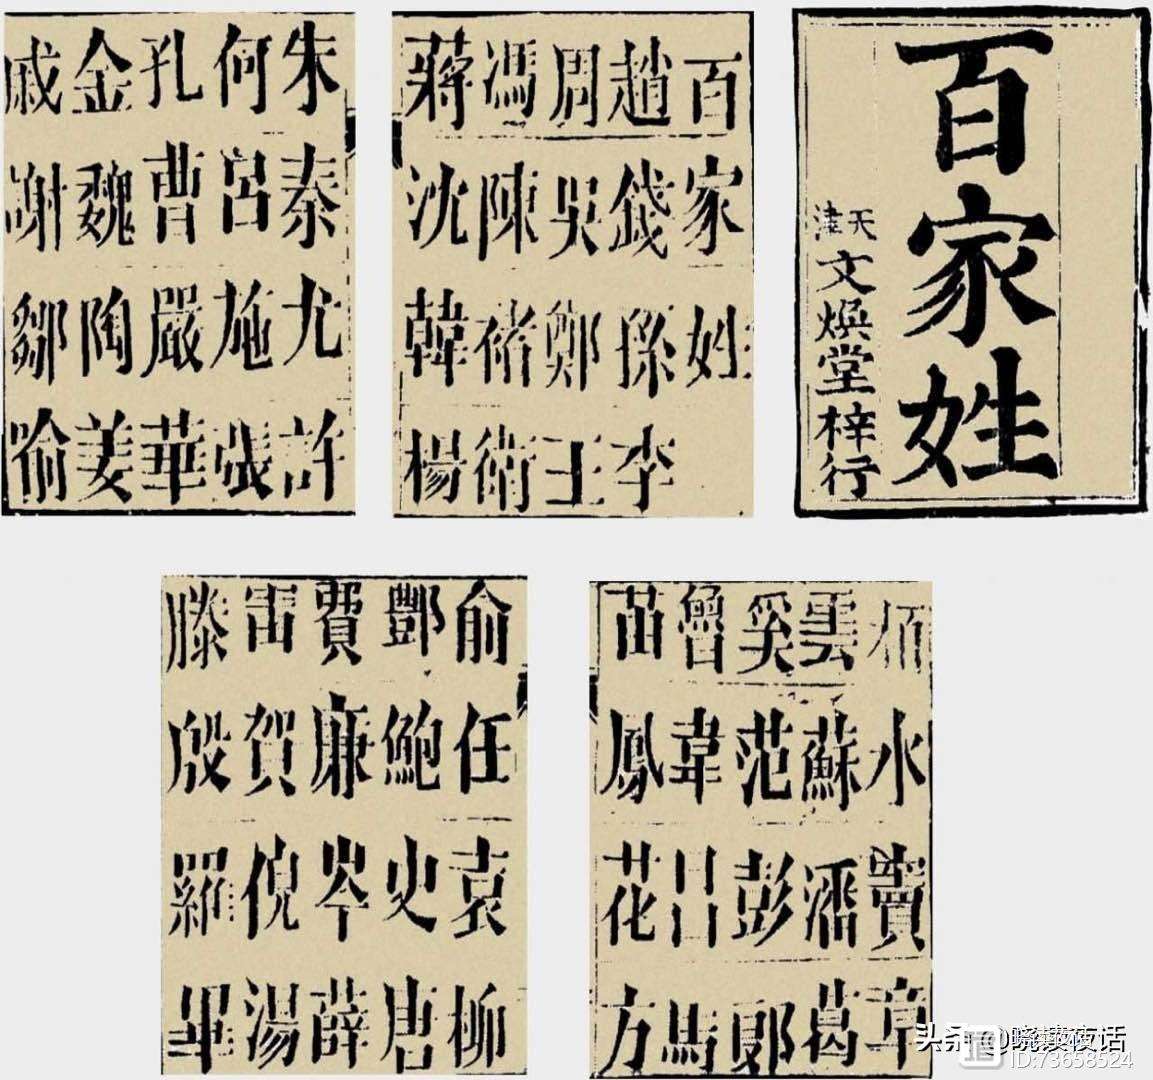 百家姓
天津文煥堂梓行
百家姓
趙錢孫李
周吳鄭王
馮陳褚衛
蔣沈韓楊
朱秦尤許
何呂施張
孔曹嚴華
金魏陶姜
戚謝鄒喻
栢水竇章
雲蘇潘葛
奚范彭郎
魯韋昌馬
苗鳳花方
俞任袁柳
酆鮑史唐
費廉岑薛
雷賀倪湯
滕殷羅畢
头条 @夜话
ID:73658524